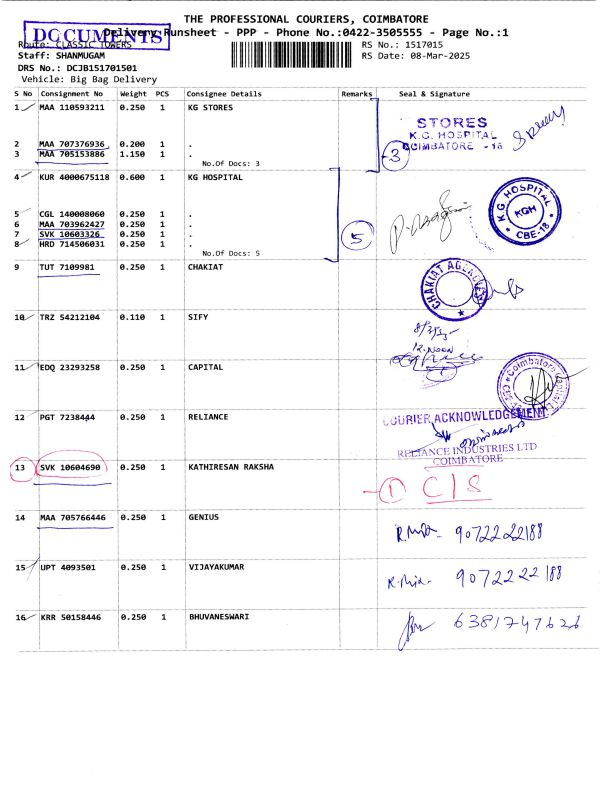 THE PROFESSIONAL COURIERS, COIMBATORE
DOCUMENTS
Delivery Runsheet - PPP - Phone No.:0422-3505555 - Page No.:1
Route: CLASSIC TOWERS
RS No.: 1517015
Staff: SHANMUGAM
RS Date: 08-Mar-2025
DRS No.: DCJB151701501
Vehicle: Big Bag Delivery
S No Consignment No Weight PCS Consignee Details Remarks Seal & Signature
1 MAA 110593211 0.250 1 KG STORES
STORES
K.G. HOSPITAL
COIMBATORE - 18
2 MAA 707376936 0.200 1 .
3 MAA 705153886 1.150 1 .
3
No.Of Docs: 3
4 KUR 4000675118 0.600 1 KG HOSPITAL
K G HOSPITAL
KGH
CBE-18
5 CGL 140008060 0.250 1 .
6 MAA 703962427 0.250 1 .
7 SVK 10603326 0.250 1 .
5
8 HRD 714506031 0.250 1 .
No.Of Docs: 5
9 TUT 7109981 0.250 1 CHAKIAT
CHAKIAT AGENCIES
10 TRZ 54212104 0.110 1 SIFY
12.NOON
11 EDQ 23293258 0.250 1 CAPITAL
12 PGT 7238444 0.250 1 RELIANCE
COURIER ACKNOWLEDGEMENT
RELIANCE INDUSTRIES LTD
COIMBATORE
13 SVK 10604690 0.250 1 KATHIRESAN RAKSHA
1 C/S
14 MAA 705766446 0.250 1 GENIUS
9072222188
15 UPT 4093501 0.250 1 VIJAYAKUMAR
9072222188
16 KRR 50158446 0.250 1 BHUVANESWARI
6381747626